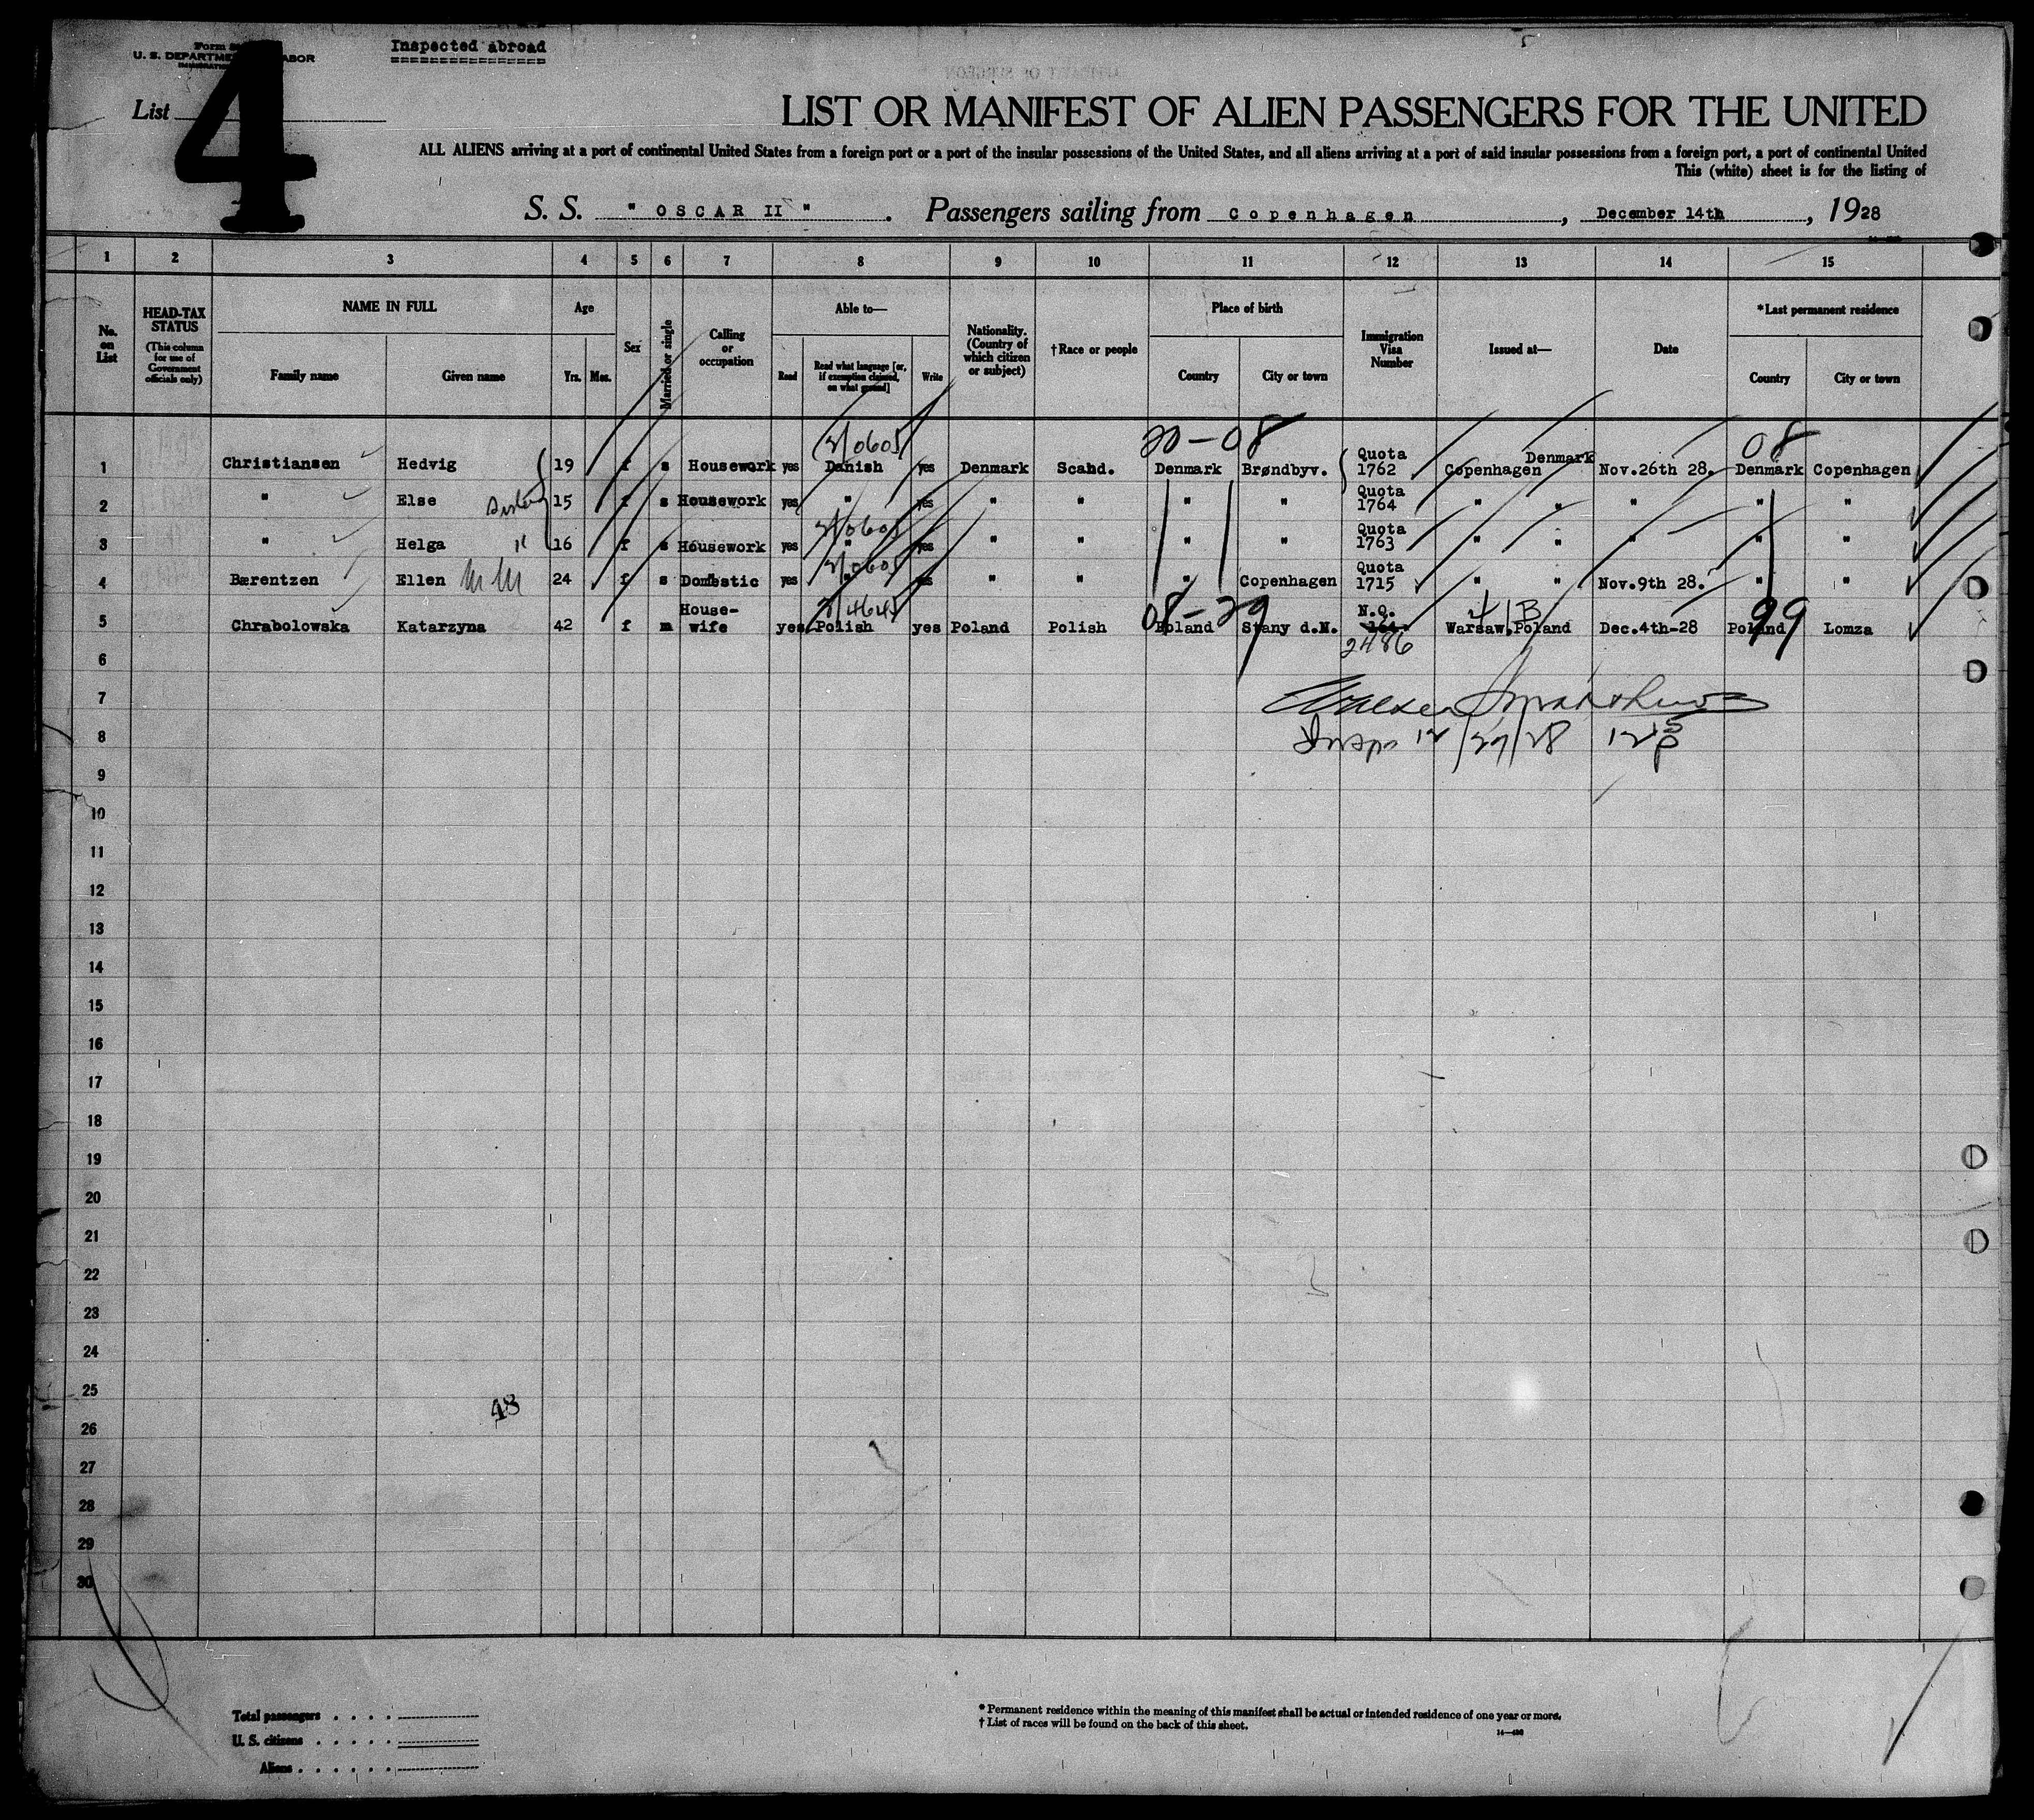 Inspected abroad
U. S. DEPARTME ABOR
List 4
LIST OR MANIFEST OF ALIEN PASSENGERS FOR THE UNITED
ALL ALIENS arriving at a port of continental United States from a foreign port or a port of the insular possessions of the United States, and all aliens arriving at a port of said insular possessions from a foreign port, a port of continental United
This (white) sheet is for the listing of
S. S. " OSCAR II " . Passengers sailing from Copenhagen , December 14th , 1928
1 2 3 4 5 6 7 8 9 10 11 12 13 14 15
No. on List
HEAD-TAX STATUS (This column for use of Government officials only)
NAME IN FULL Family name Given name
Age Yrs. Mos.
Sex
Married or single
Calling or occupation
Able to— Read Read what language [or, if exemption claimed, on what ground] Write
Nationality. (Country of which citizen or subject)
†Race or people
Place of birth Country City or town
Immigration Visa Number
Issued at—
Date
*Last permanent residence Country City or town
2/0605 20-08 08
1 Christiansen Hedvig 19 f s Housework yes Danish yes Denmark Scand. Denmark Brøndbyv. Quota 1762 Copenhagen Denmark Nov.26th 28. Denmark Copenhagen
2 " Else sister 15 f s Housework yes " yes " " " " Quota 1764 " " " " "
2/0605
3 " Helga " 16 f s Housework yes " yes " " " " Quota 1763 " " " " "
2/0605
4 Bærentzen Ellen 24 f s Domestic yes " yes " " " Copenhagen Quota 1715 " " Nov.9th 28. " "
2/4645 08-29 4 B 99
5 Chrabolowska Katarzyna 42 f m House-wife yes Polish yes Poland Polish Poland Stany d.M. N.Q. 2486 Warsaw,Poland Dec.4th-28 Poland Lomza
6
7
8 Insp 12/27/28 12 15 p
9
10
11
12
13
14
15
16
17
18
19
20
21
22
23
24
25
48
26
27
28
29
30
Total passengers
U. S. citizens
Aliens
* Permanent residence within the meaning of this manifest shall be actual or intended residence of one year or more.
† List of races will be found on the back of this sheet.